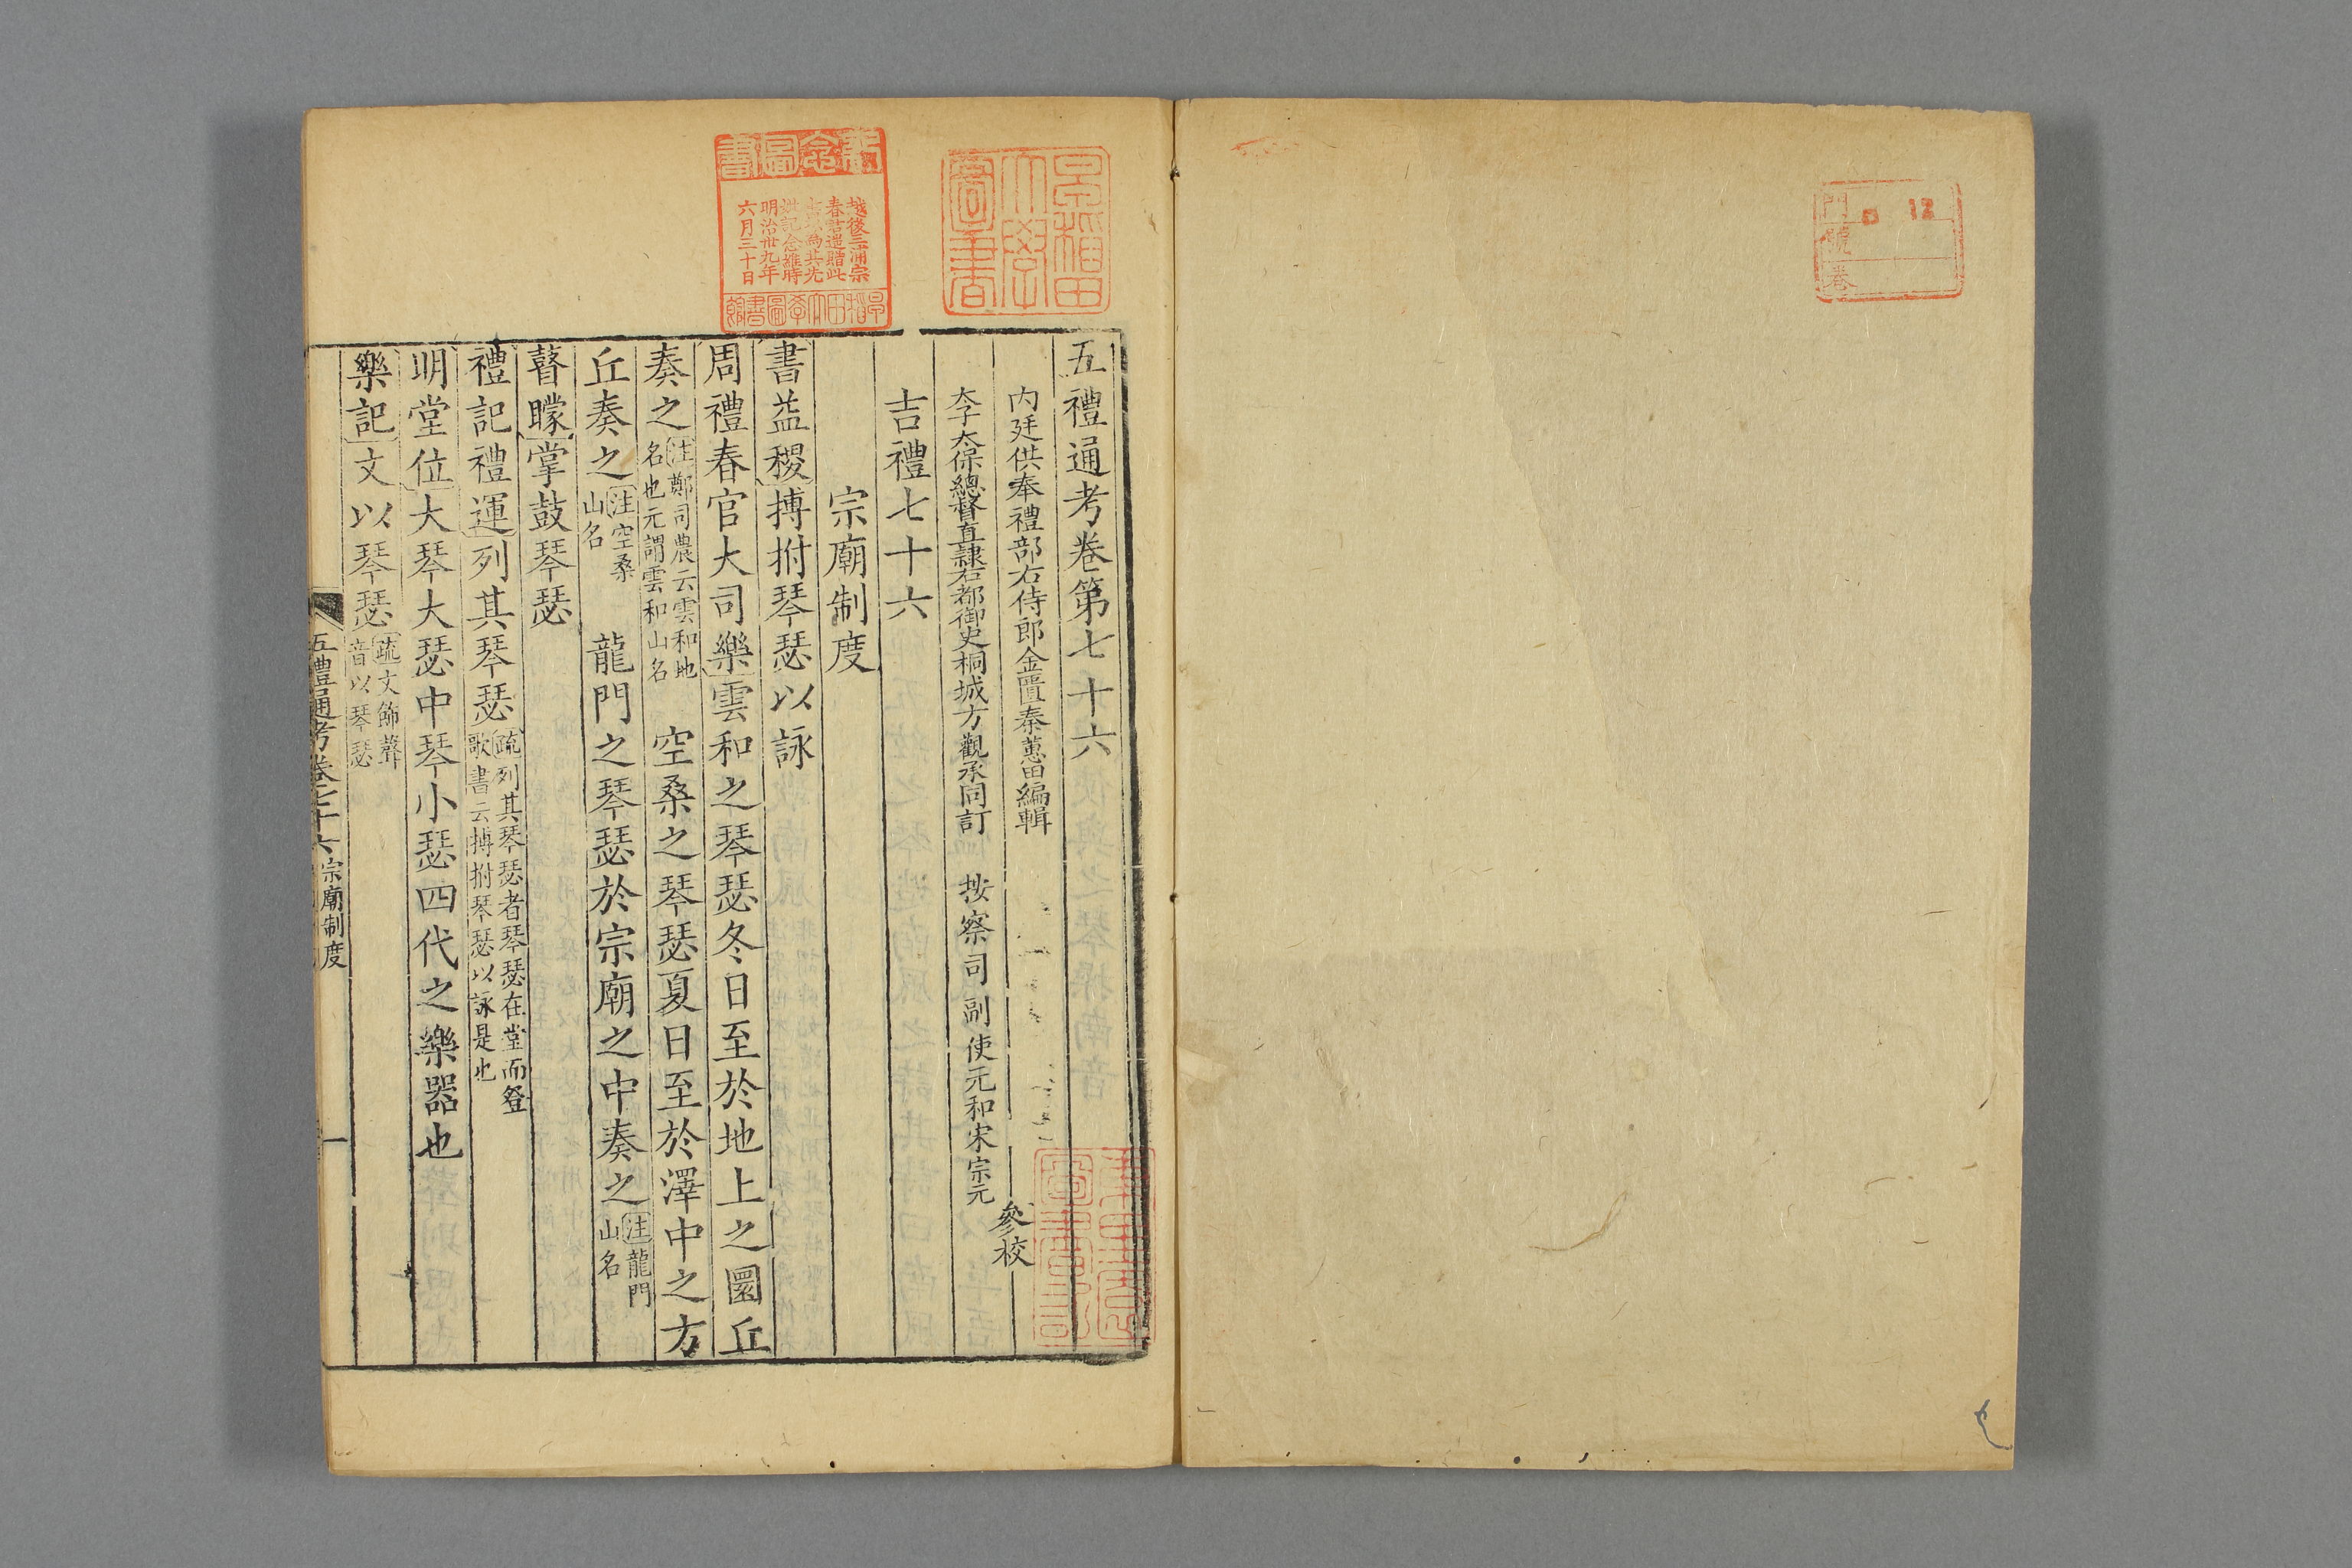 五禮通考卷第七十六
内廷供奉禮部右侍郎金匱秦蕙田編輯
太子太保總督直隸右都御史桐城方觀承同訂
按察司副使元和宋宗元
參校
吉禮七十六
宗廟制度
書益稷搏拊琴瑟以詠
周禮春官大司樂雲和之琴瑟冬日至於地上之圜丘
奏之注鄭司農云雲和地名也元謂雲和山名 空桑之琴瑟夏日至於澤中之方
丘奏之注空桑山名 龍門之琴瑟於宗廟之中奏之注龍門山名
瞽矇掌鼓琴瑟
禮記禮運列其琴瑟疏列其琴瑟者琴瑟在堂而登歌書云搏拊琴瑟以詠是也
明堂位大琴大瑟中琴小瑟四代之樂器也
樂記文以琴瑟疏文飾聲音以琴瑟
五禮通考卷七十六 宗廟制度 一
早稻田
大學
圖書
紀念圖書
越後三浦宗
春
遺贈此
明治卅九年
六月三十日
早稻田大學圖書館
門
號
卷
12